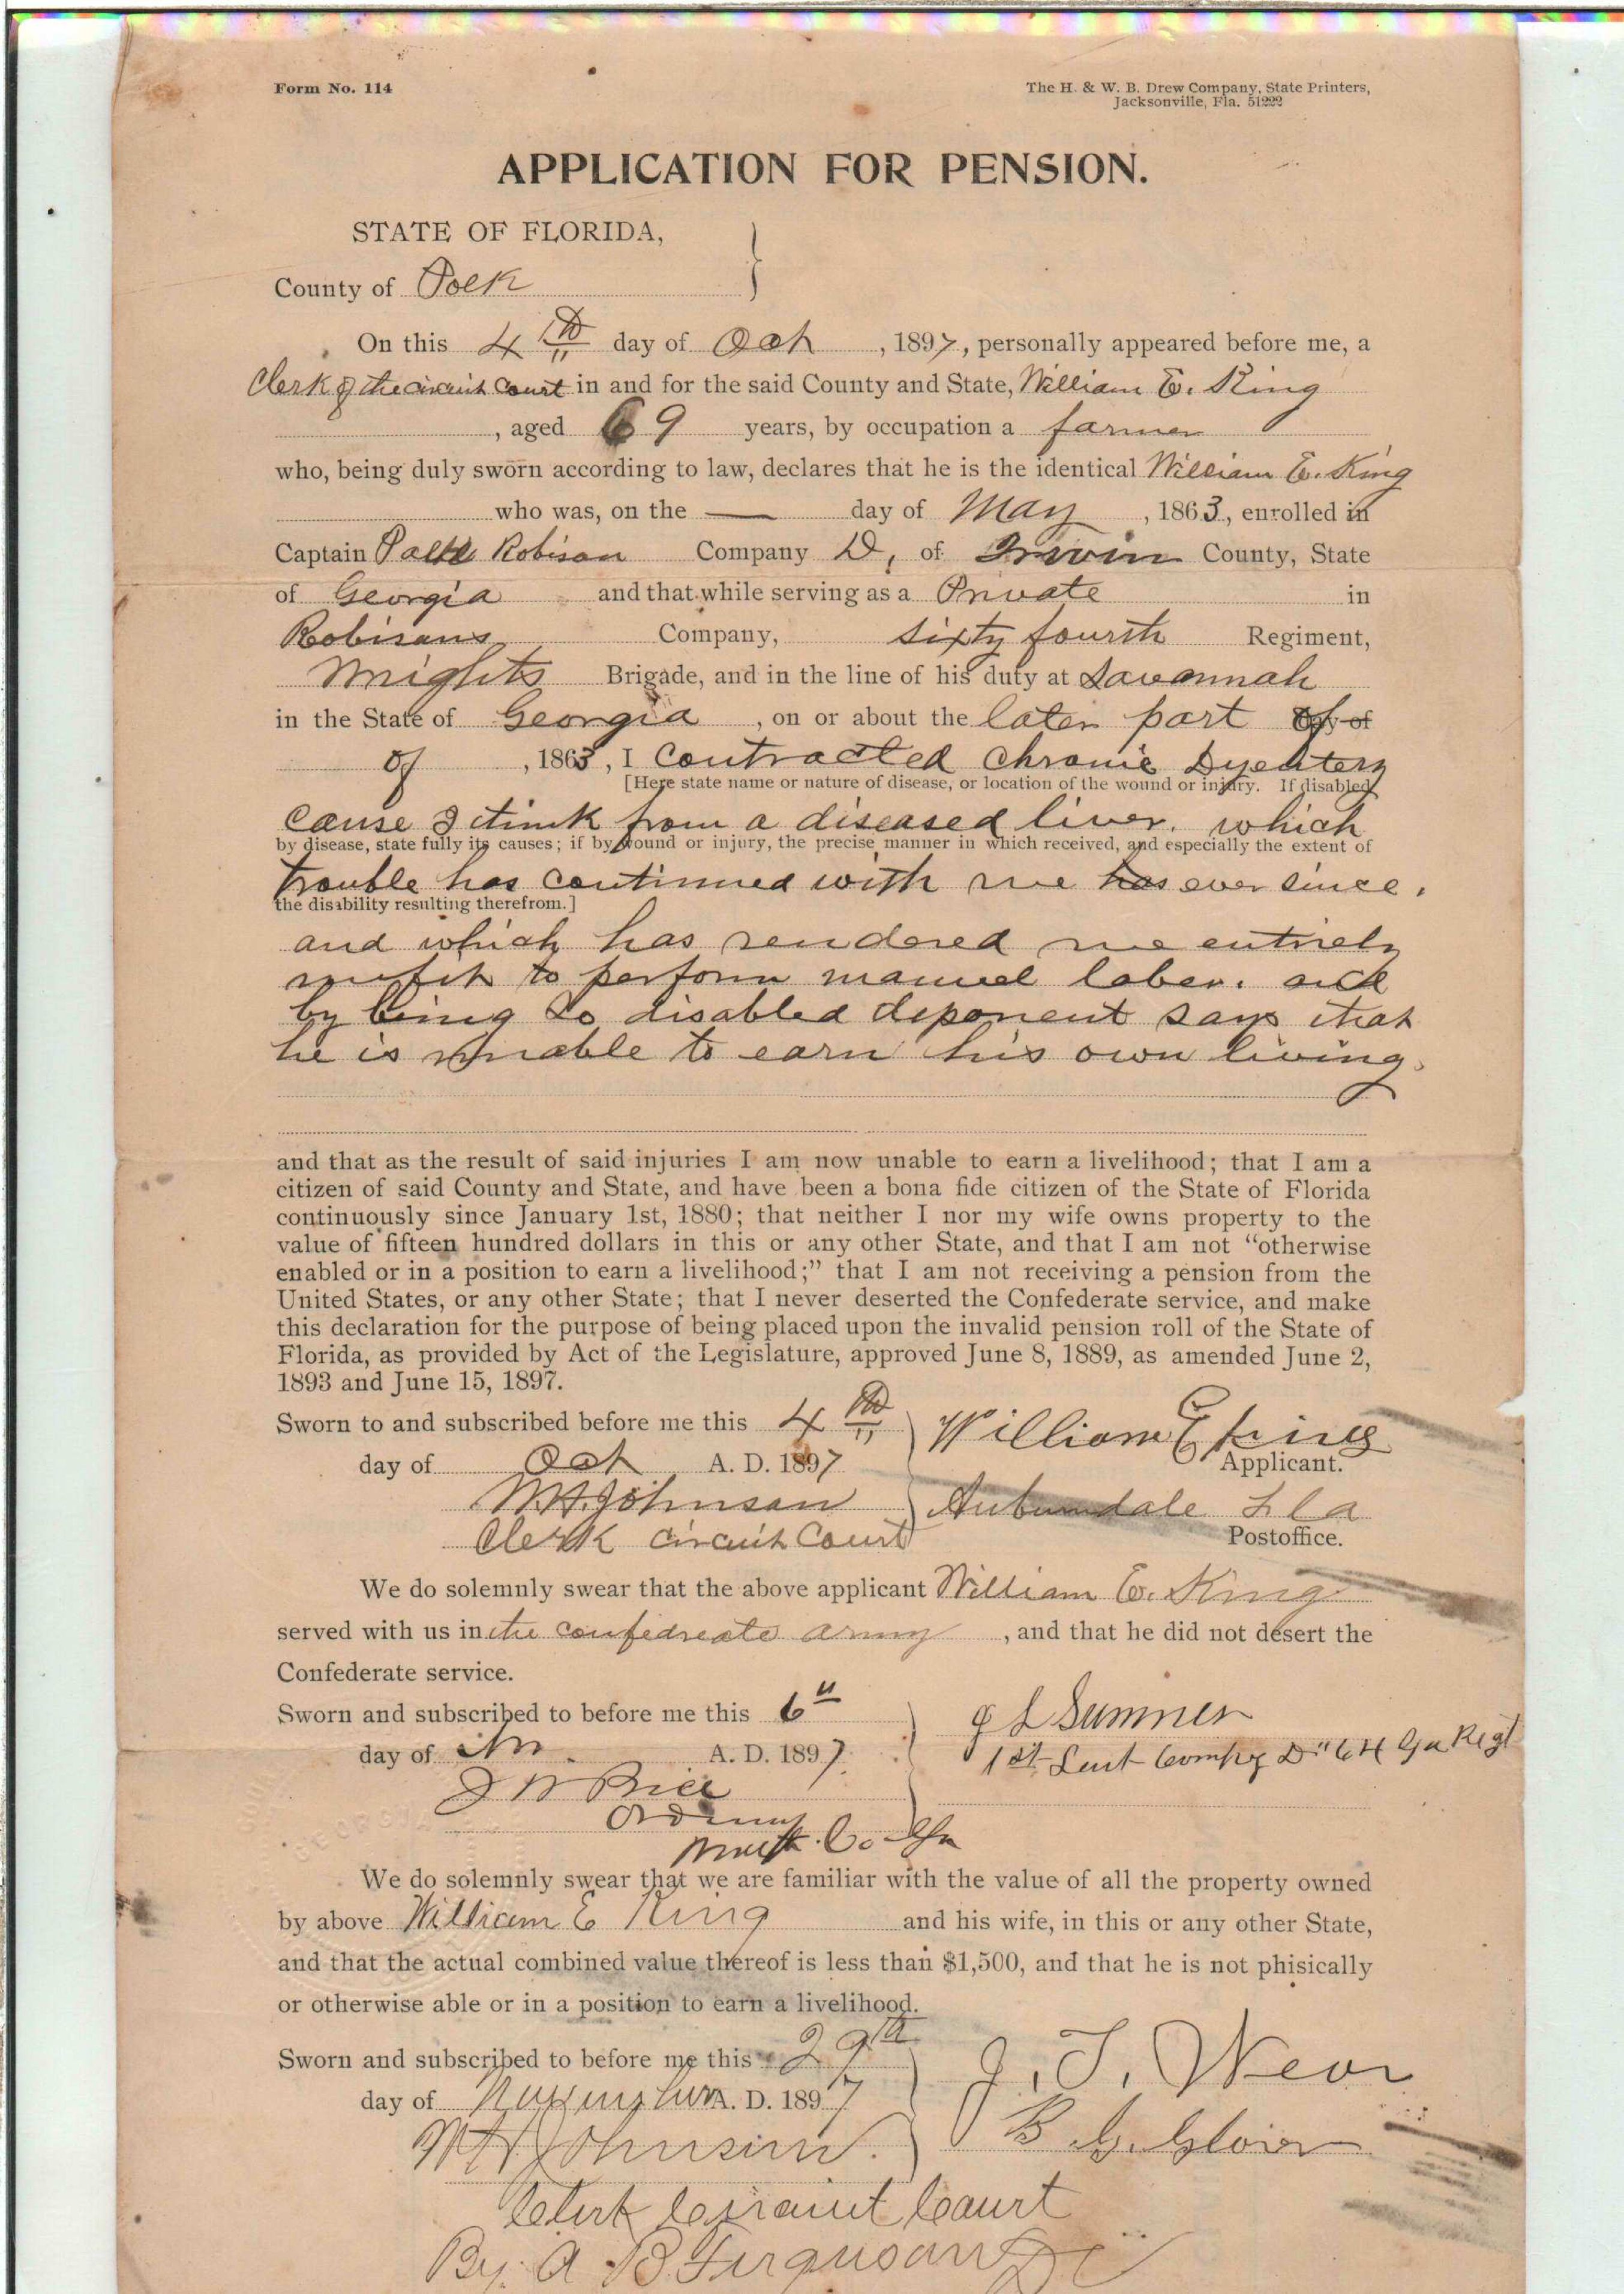 Form No. 114
The H. & W. B. Drew Company, State Printers,
Jacksonville, Fla. 51222
APPLICATION FOR PENSION.
STATE OF FLORIDA,
County of Polk
On this 4th day of Oct, 1897, personally appeared before me, a
Clerk of the circuit Court in and for the said County and State, William E. King
, aged 69 years, by occupation a farmer
who, being duly sworn according to law, declares that he is the identical William E. King
who was, on the — day of May, 1863, enrolled in
Captain Robison Company D, of Irwin County, State
of Georgia and that while serving as a Private in
Robisans Company, sixty fourth Regiment,
Wrights Brigade, and in the line of his duty at Savannah
in the State of Georgia, on or about the later part of
of, 1863, I contracted chronic Dyentery
[Here state name or nature of disease, or location of the wound or injury. If disabled
cause I think from a diseased liver. which
by disease, state fully its causes; if by wound or injury, the precise manner in which received, and especially the extent of
trouble has continued with me has ever since,
the disability resulting therefrom.]
and which has rendered me entirely
unfit to perform manuel labor. and
by being so disabled deponent says that
he is unable to earn his own living.
and that as the result of said injuries I am now unable to earn a livelihood; that I am a
citizen of said County and State, and have been a bona fide citizen of the State of Florida
continuously since January 1st, 1880; that neither I nor my wife owns property to the
value of fifteen hundred dollars in this or any other State, and that I am not "otherwise
enabled or in a position to earn a livelihood;" that I am not receiving a pension from the
United States, or any other State; that I never deserted the Confederate service, and make
this declaration for the purpose of being placed upon the invalid pension roll of the State of
Florida, as provided by Act of the Legislature, approved June 8, 1889, as amended June 2,
1893 and June 15, 1897.
Sworn to and subscribed before me this 4th William E King
day of Oct A. D. 1897 Applicant.
W.H. Johnson Auburndale Fla
Clerk circuit Court Postoffice.
We do solemnly swear that the above applicant William E. King
served with us in the confedreate army, and that he did not desert the
Confederate service.
Sworn and subscribed to before me this 6" J L Sumner
day of A. D. 1897. 1st Leut Compy D" 64 Ga Regt
J W Price
Ordinary
Worth Co Ga
We do solemnly swear that we are familiar with the value of all the property owned
by above William E King and his wife, in this or any other State,
and that the actual combined value thereof is less than $1,500, and that he is not phisically
or otherwise able or in a position to earn a livelihood.
Sworn and subscribed to before me this 29th J. T. Wear
day of November A. D. 1897 B. G. Glover
W H Johnson.
Clerk Circuit Court
By A B Ferguson DC
GEORGIA